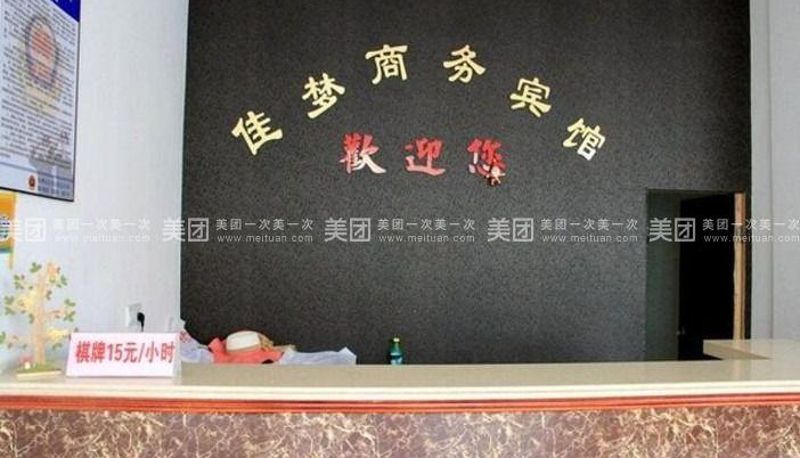 佳梦商务宾馆
歡迎您
美团 美团一次美一次 美团 美团一次美一次 美团 美团一次美一次 美团 美团一次美一次 美团 美团一次美一次
www.meituan.com www.meituan.com www.meituan.com www.meituan.com www.meituan.com
棋牌15元/小时